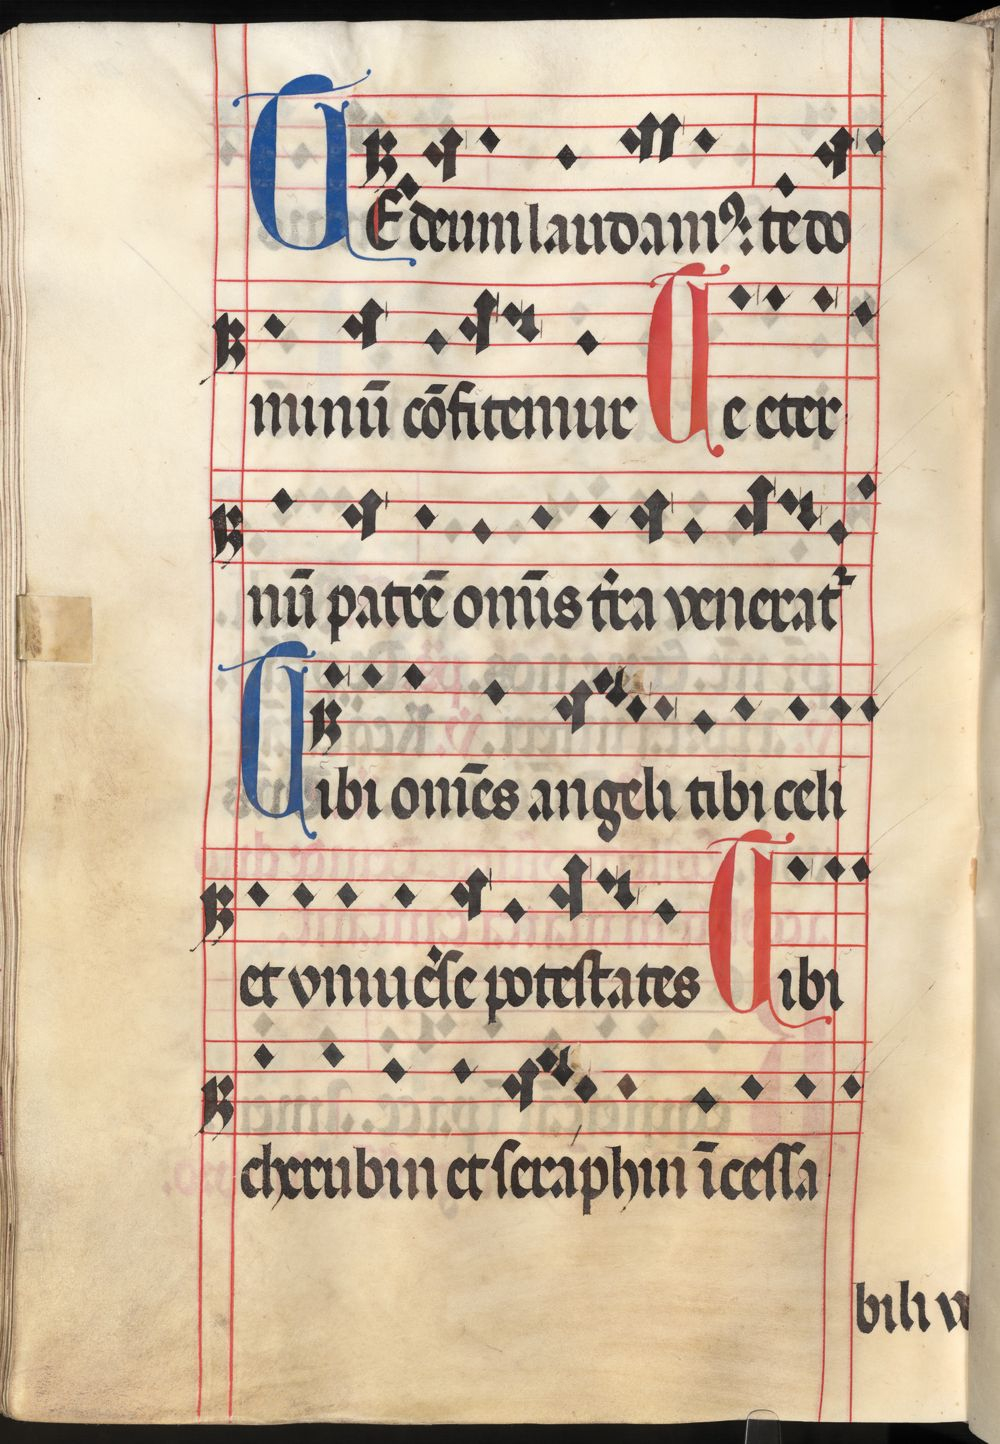 TE deum laudamꝰ: te do
minū cōfitemur Te eter
nū patrē om̄is tr̄a venerat᷑
Tibi om̄es angeli tibi celi
et vniuer̄se potestates Tibi
cherubin et seraphin īcessa
bili vo